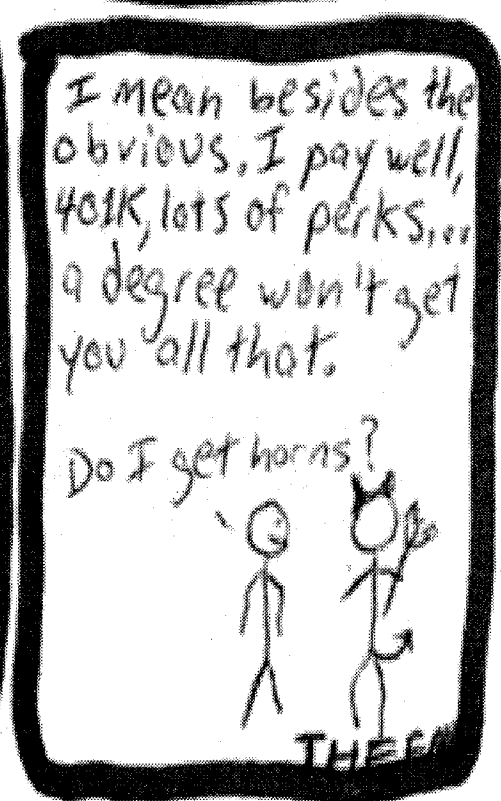 I mean besides the
obvious. I pay well,
401K, lots of perks...
a degree won't get
you all that.
Do I get horns?
THE